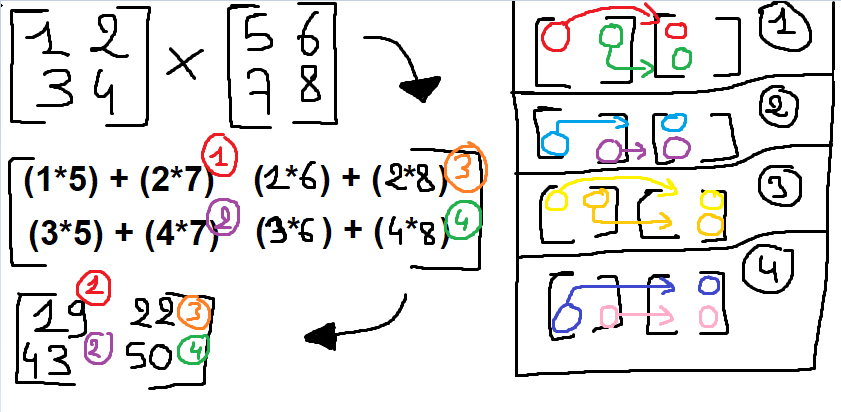 1 2 × 5 6
3 4 7 8
(1*5) + (2*7) 1 (1*6) + (2*8) 3
(3*5) + (4*7) 2 (3*6) + (4*8) 4
19 1 22 3
43 2 50 4
1
2
3
4